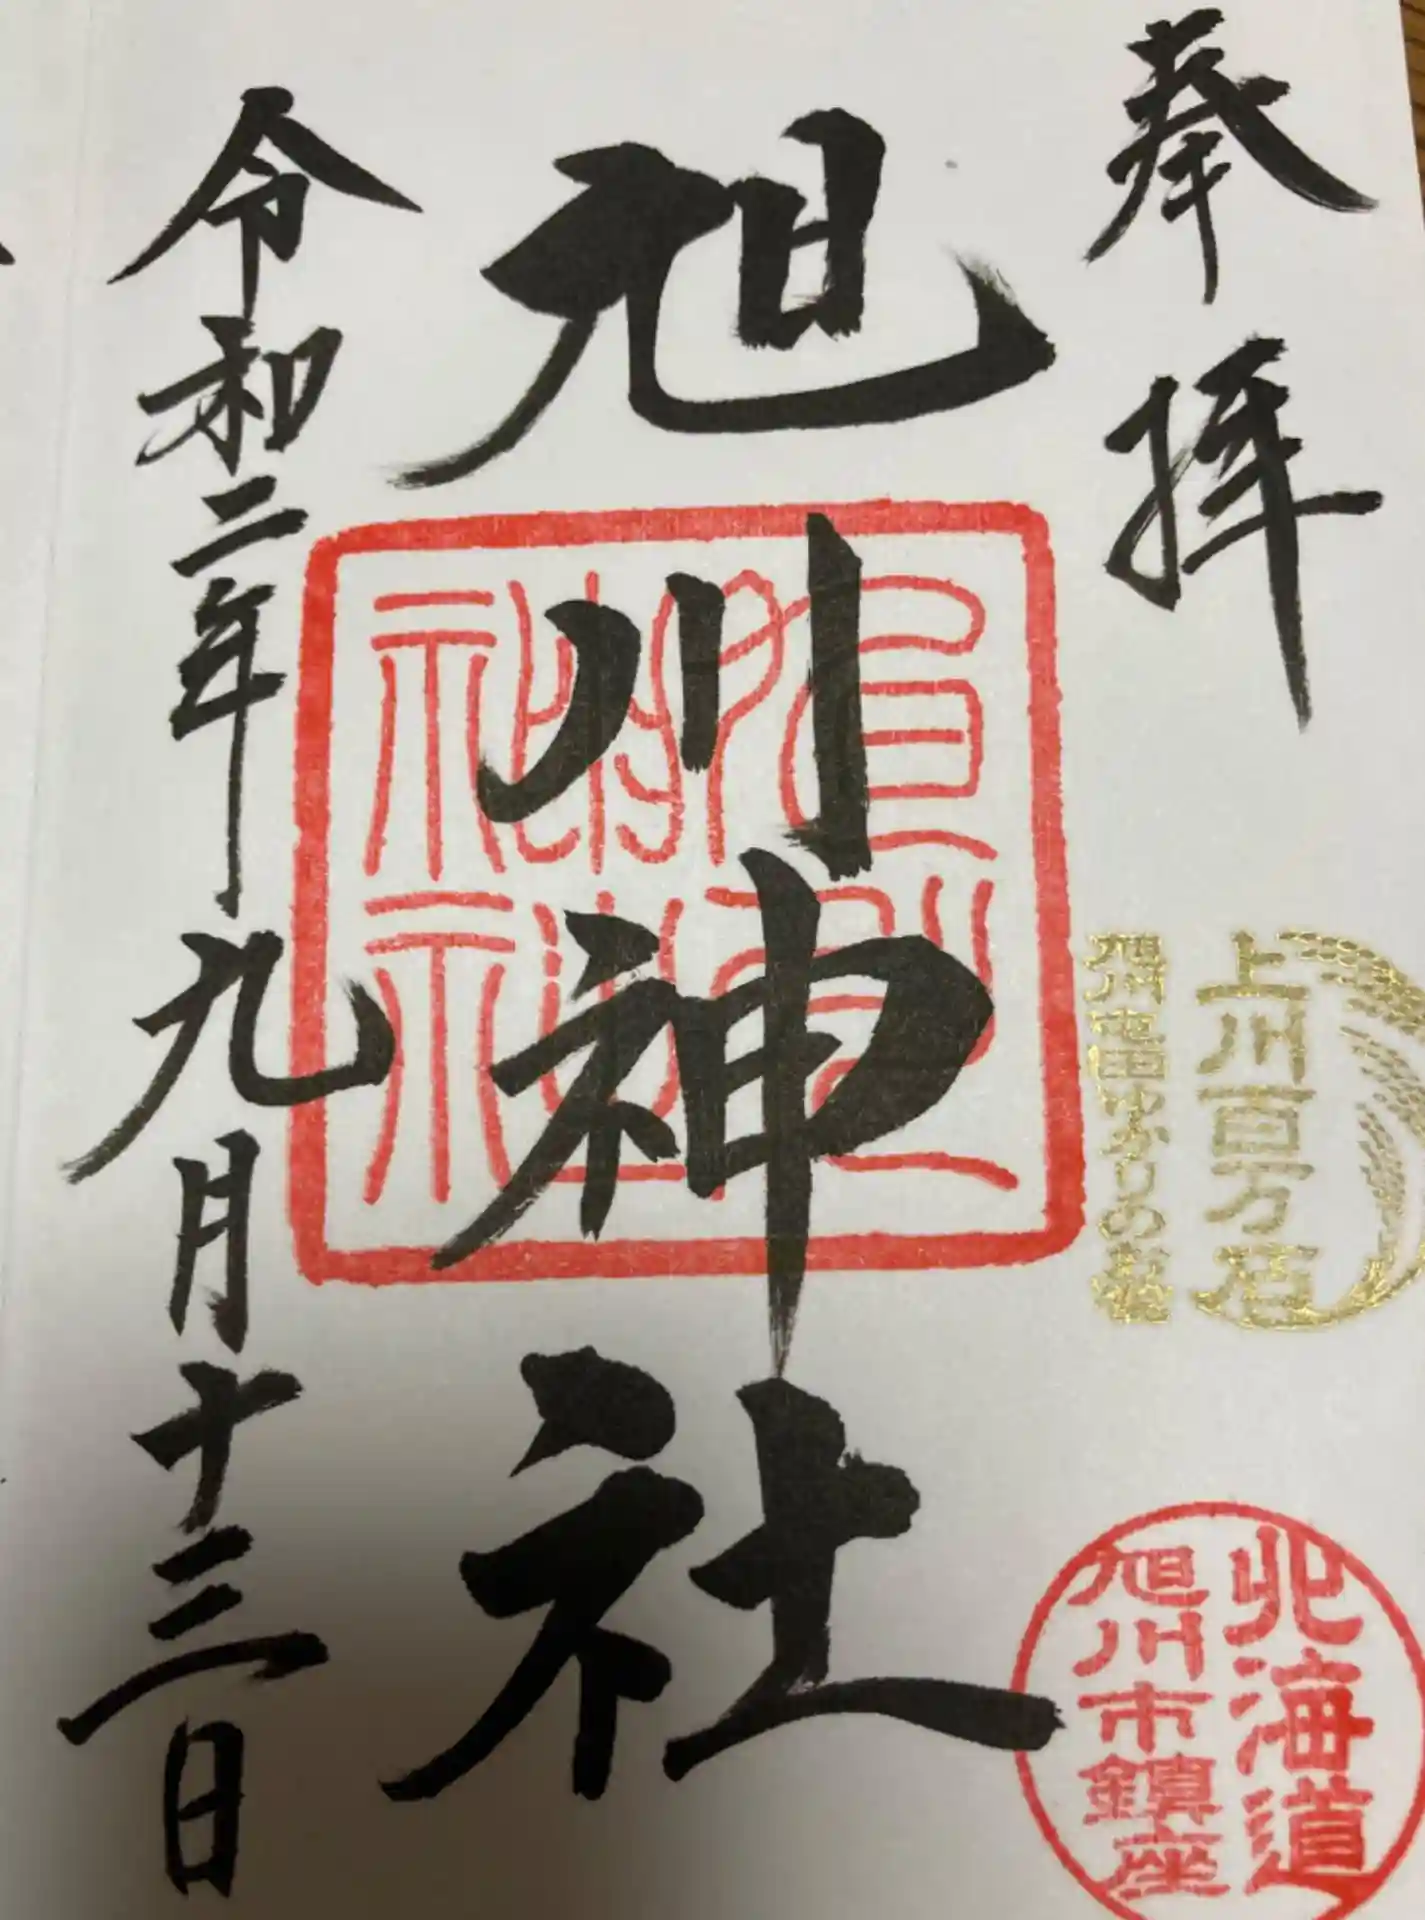 奉拝
上川百万石
旭川屯田ゆかりの社
北海道
旭川市鎮座
旭川神社
令和二年九月十三日